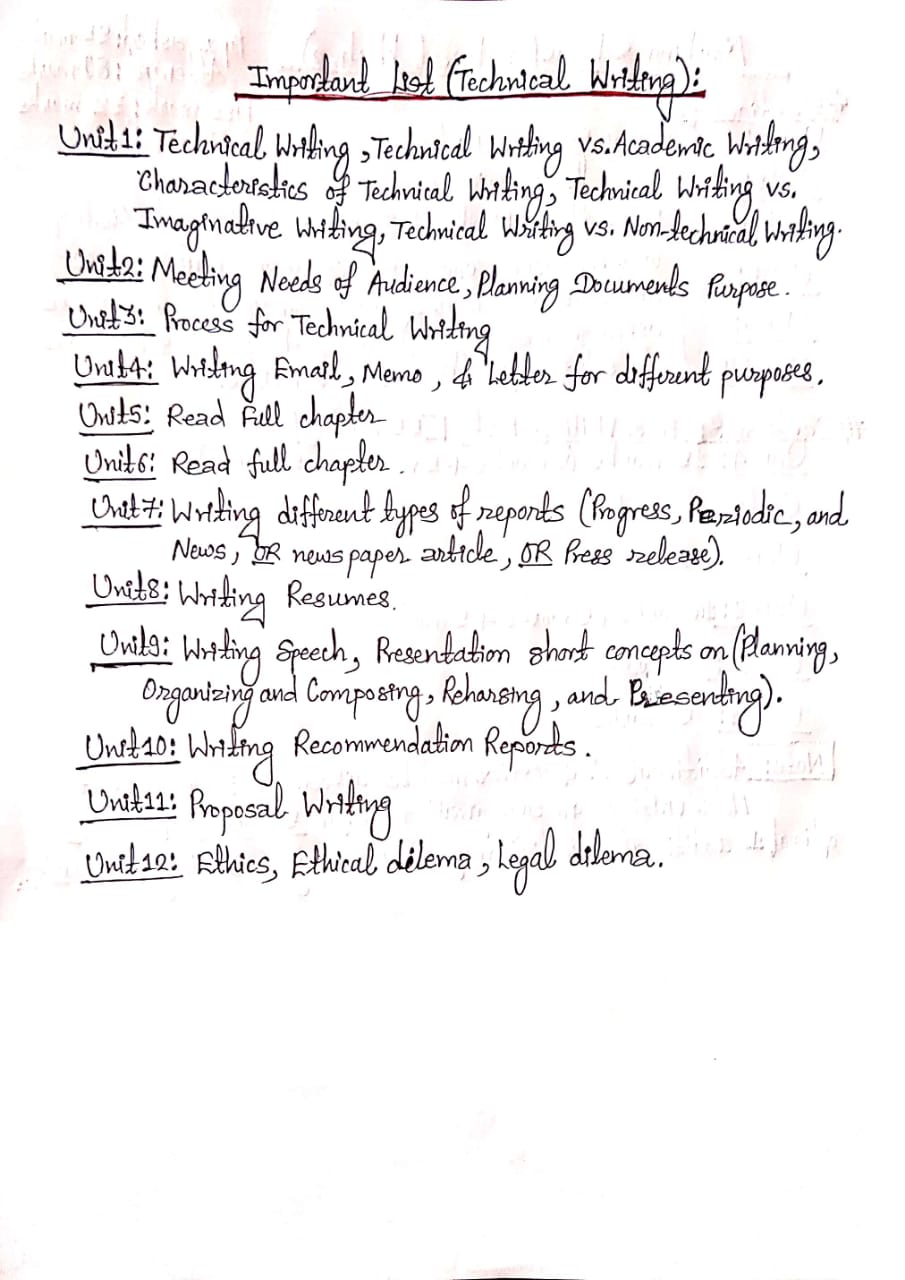 Important List (Technical Writing):
Unit1: Technical Writing, Technical Writing vs. Academic Writing,
Characteristics of Technical Writing, Technical Writing vs.
Imaginative Writing, Technical Writing vs. Non-technical Writing.
Unit2: Meeting Needs of Audience, Planning Documents Purpose.
Unit3: Process for Technical Writing
Unit4: Writing Email, Memo, & Letter for different purposes.
Unit5: Read Full chapter
Unit6: Read full chapter.
Unit7: Writing different types of reports (Progress, Periodic, and
News, OR news paper article, OR Press release).
Unit8: Writing Resumes.
Unit9: Writing Speech, Presentation short concepts on (Planning,
Organizing and Composing, Reharsing, and Presenting).
Unit10: Writing Recommendation Reports.
Unit11: Proposal Writing
Unit12: Ethics, Ethical dilema, Legal dilema.